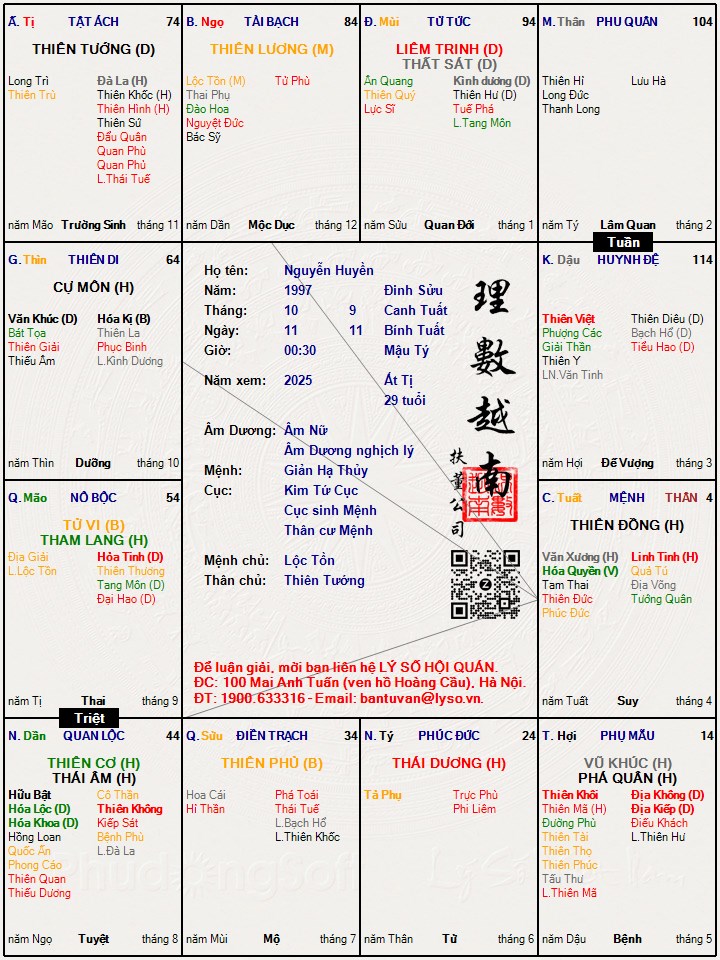 Ấ. Tị TẬT ÁCH 74
THIÊN TƯỚNG (D)
Long Trì
Thiên Trù
Đà La (H)
Thiên Khốc (H)
Thiên Hình (H)
Thiên Sứ
Đẩu Quân
Quan Phù
Quan Phủ
L.Thái Tuế
năm Mão Trường Sinh tháng 11
B. Ngọ TÀI BẠCH 84
THIÊN LƯƠNG (M)
Lộc Tồn (M)
Thai Phụ
Đào Hoa
Nguyệt Đức
Bác Sỹ
Tử Phù
năm Dần Mộc Dục tháng 12
Đ. Mùi TỬ TỨC 94
LIÊM TRINH (D)
THẤT SÁT (D)
Ân Quang
Thiên Quý
Lực Sĩ
Kình dương (D)
Thiên Hư (D)
Tuế Phá
L.Tang Môn
năm Sửu Quan Đới tháng 1
M. Thân PHU QUÂN 104
Thiên Hỉ
Long Đức
Thanh Long
Lưu Hà
năm Tý Lâm Quan tháng 2
Tuần
G. Thìn THIÊN DI 64
CỰ MÔN (H)
Văn Khúc (D)
Bát Tọa
Thiên Giải
Thiếu Âm
Hóa Kị (B)
Thiên La
Phục Binh
L.Kình Dương
năm Thìn Dưỡng tháng 10
Họ tên: Nguyễn Huyền
Năm: 1997 Đinh Sửu
Tháng: 10 9 Canh Tuất
Ngày: 11 11 Bính Tuất
Giờ: 00:30 Mậu Tý
Năm xem: 2025 Ất Tị
29 tuổi
Âm Dương: Âm Nữ
Âm Dương nghịch lý
Mệnh: Giản Hạ Thủy
Cục: Kim Tứ Cục
Cục sinh Mệnh
Thân cư Mệnh
Mệnh chủ: Lộc Tồn
Thân chủ: Thiên Tướng
理數越南
扶董公司
Để luận giải, mời bạn liên hệ LÝ SỐ HỘI QUÁN.
ĐC: 100 Mai Anh Tuấn (ven hồ Hoàng Cầu), Hà Nội.
ĐT: 1900.633316 - Email: bantuvan@lyso.vn.
K. Dậu HUYNH ĐỆ 114
Thiên Việt
Phượng Các
Giải Thần
Thiên Y
LN.Văn Tinh
Thiên Diêu (D)
Bạch Hổ (D)
Tiểu Hao (D)
năm Hợi Đế Vượng tháng 3
Q. Mão NÔ BỘC 54
TỬ VI (B)
THAM LANG (H)
Địa Giải
L.Lộc Tồn
Hỏa Tinh (D)
Thiên Thương
Tang Môn (D)
Đại Hao (D)
năm Tị Thai tháng 9
Triệt
C. Tuất MỆNH THÂN 4
THIÊN ĐỒNG (H)
Văn Xương (H)
Hóa Quyền (V)
Tam Thai
Thiên Đức
Phúc Đức
Linh Tinh (H)
Quả Tú
Địa Võng
Tướng Quân
năm Tuất Suy tháng 4
N. Dần QUAN LỘC 44
THIÊN CƠ (H)
THÁI ÂM (H)
Hữu Bật
Hóa Lộc (D)
Hóa Khoa (D)
Hồng Loan
Quốc Ấn
Phong Cáo
Thiên Quan
Thiếu Dương
Cô Thần
Thiên Không
Kiếp Sát
Bệnh Phù
L.Đà La
năm Ngọ Tuyệt tháng 8
Q. Sửu ĐIỀN TRẠCH 34
THIÊN PHỦ (B)
Hoa Cái
Hỉ Thần
Phá Toái
Thái Tuế
L.Bạch Hổ
L.Thiên Khốc
năm Mùi Mộ tháng 7
N. Tý PHÚC ĐỨC 24
THÁI DƯƠNG (H)
Tả Phụ
Trực Phù
Phi Liêm
năm Thân Tử tháng 6
T. Hợi PHỤ MẪU 14
VŨ KHÚC (H)
PHÁ QUÂN (H)
Thiên Khôi
Thiên Mã (H)
Đường Phù
Thiên Tài
Thiên Thọ
Thiên Phúc
Tấu Thư
L.Thiên Mã
Địa Không (D)
Địa Kiếp (D)
Điếu Khách
L.Thiên Hư
năm Dậu Bệnh tháng 5